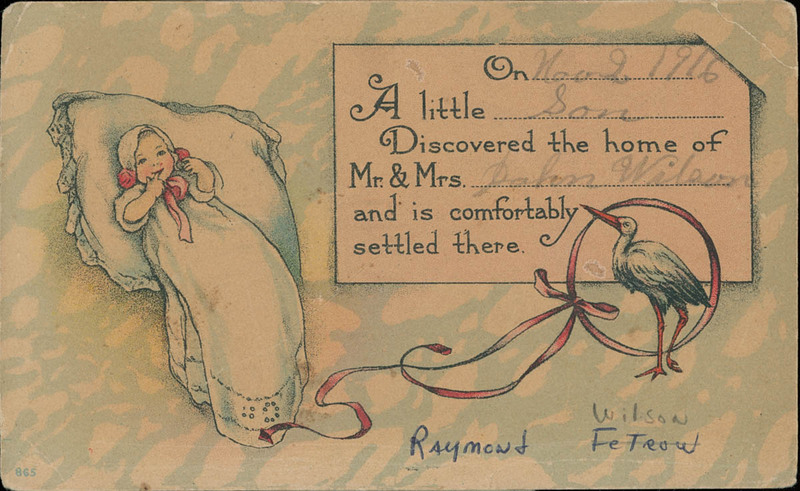 On Nov 2 1916
A little Son
Discovered the home of
Mr. & Mrs. John Wilson
and is comfortably
settled there.
Wilson
Raymond Fetrow
865